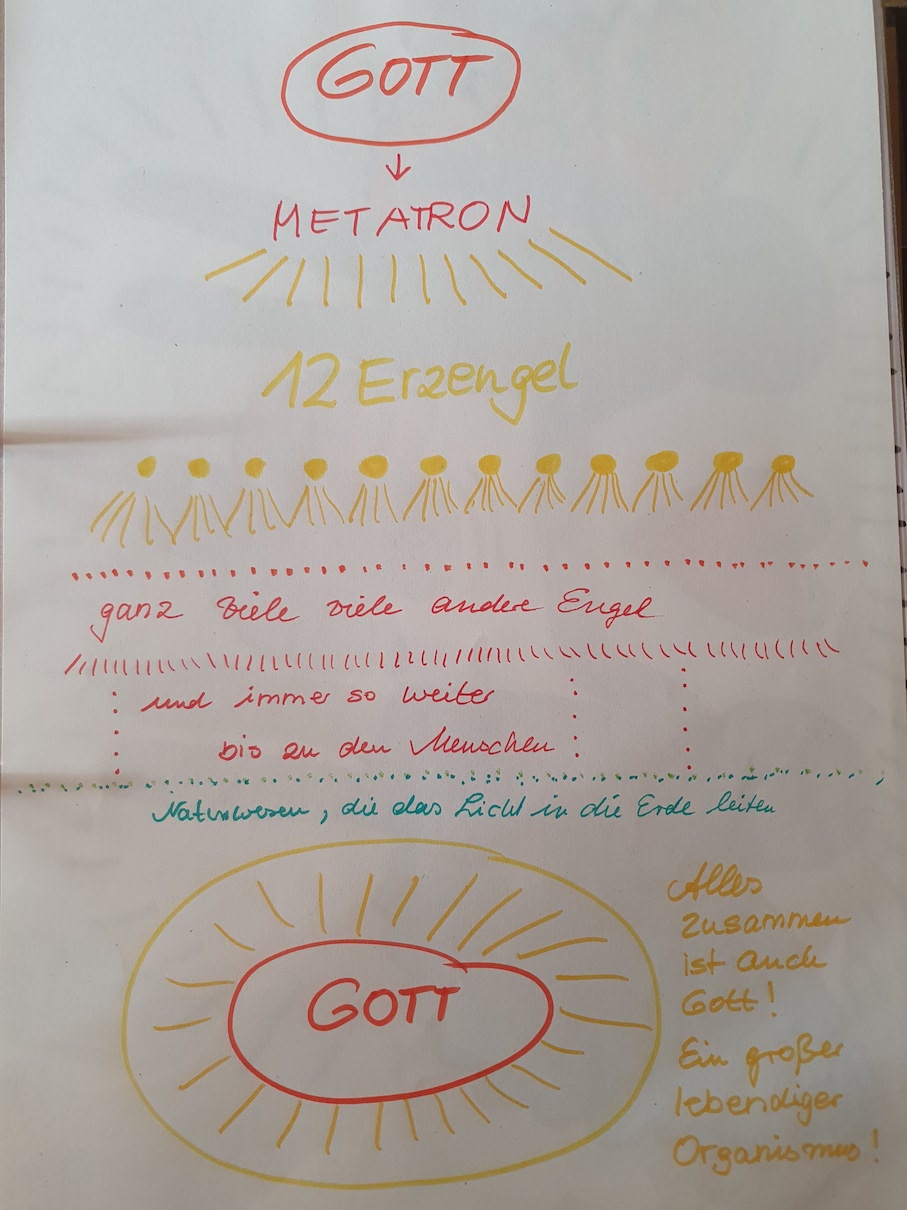 GOTT
METATRON
12 Erzengel
ganz viele viele andere Engel
und immer so weiter
bis zu den Menschen
Naturwesen, die das Licht in die Erde leiten
GOTT
Alles
zusammen
ist auch
Gott!
Ein großer
lebendiger
Organismus!